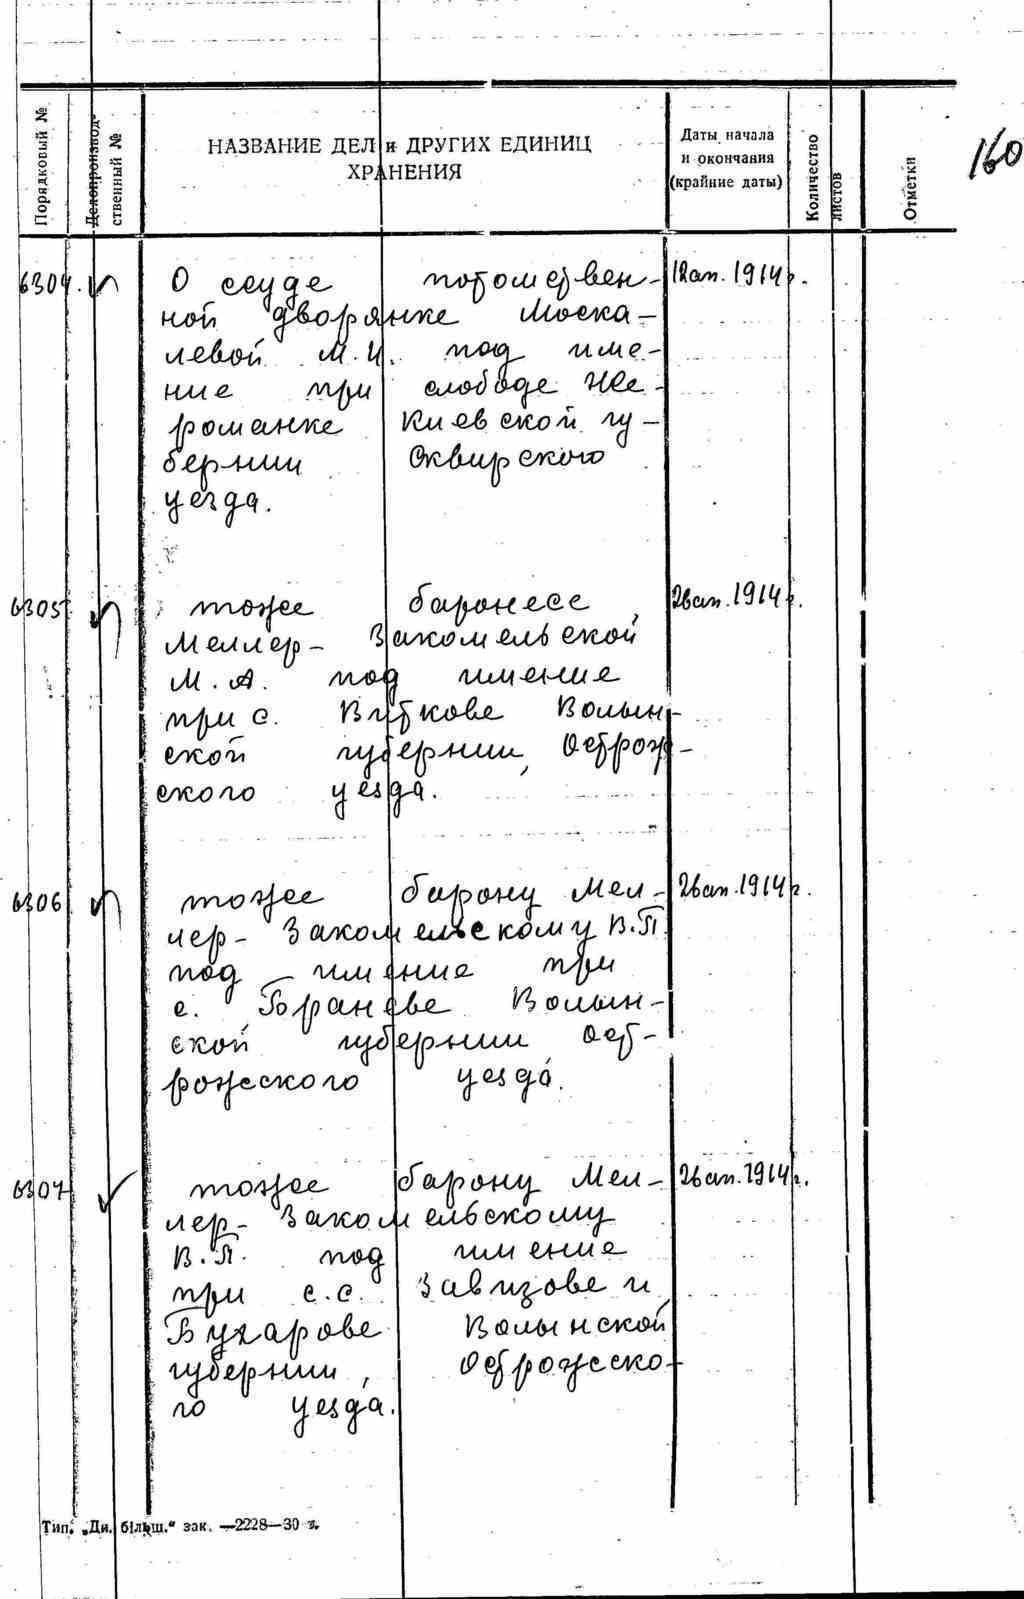 160
Порядковый №
Делопроизвод-
ственный №
НАЗВАНИЕ ДЕЛ и ДРУГИХ ЕДИНИЦ
ХРАНЕНИЯ
Даты начала
и окончания
(крайние даты)
Количество
листов
Отметки
6304. О ссуде потомствен- 12 ап. 1914 г.
ной дворянке Моска-
левой М.И. под име-
ние при слободе Же-
романке Киевской гу-
бернии Сквирского
уезда.
6305 тоже баронесе 26 ап. 1914 г.
Меллер- Закомельской
М.А. под имение
при с. Виткове Волын-
ской губернии, Острож-
ского уезда.
6306 тоже барону Мел- 26 ап. 1914 г.
лер- Закомельскому В.П.
под имение при
с. Бранове Волын-
ской губернии Ост-
рожеского уезда.
6307 тоже барону Мел- 26 ап. 1914 г.
лер- Закомельскому
В.П. под имение
при с.с. Завизове и
Бухарове Волынской
губернии, Острожеско-
го уезда.
Тип. „Дн. більш." зак. —2228—30 т.